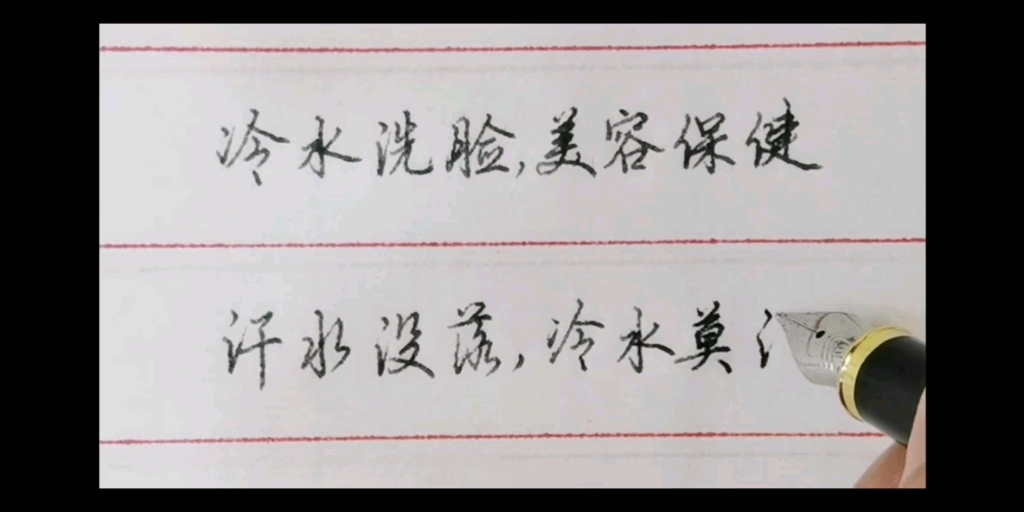 冷水洗脸,美容保健
汗水没落,冷水莫